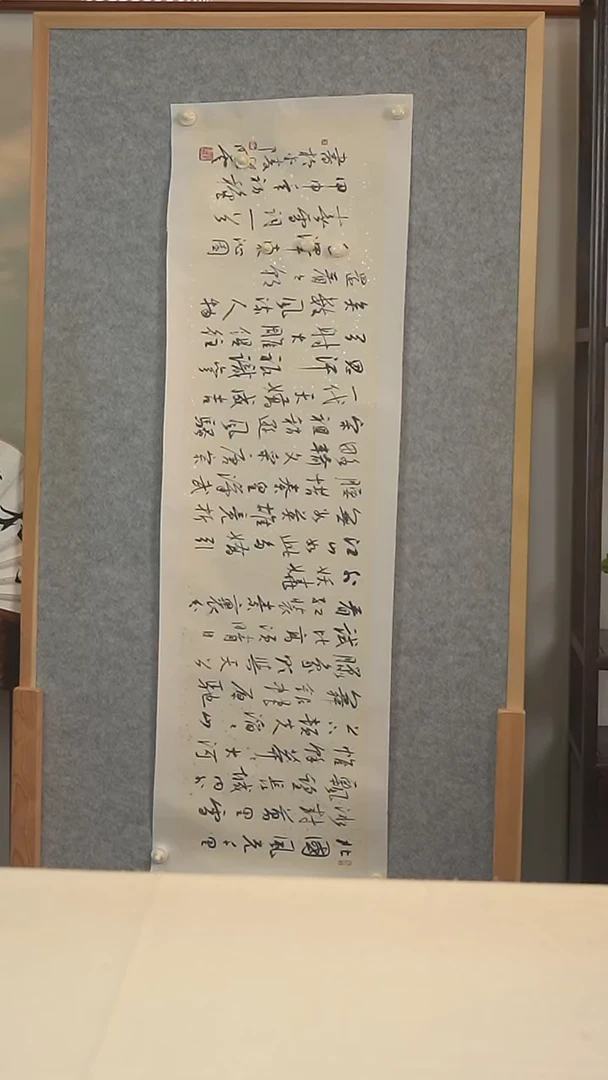 北國風光千里
冰封萬里雪
飄望長城内外
惟餘莽莽大河
上下頓失滔滔山
舞銀蛇原馳
蠟象欲與天公
試比高須晴日
看紅裝素裹分外
妖嬈
江山如此多嬌引
無數英雄競折
腰惜秦皇漢武
略輸文采唐宗
宋祖稍遜風騷
一代天驕成吉
思汗祇識彎
弓射大雕俱往
矣數風流人物
還看今朝
毛澤東沁園
春雪詞一首
甲申
書於